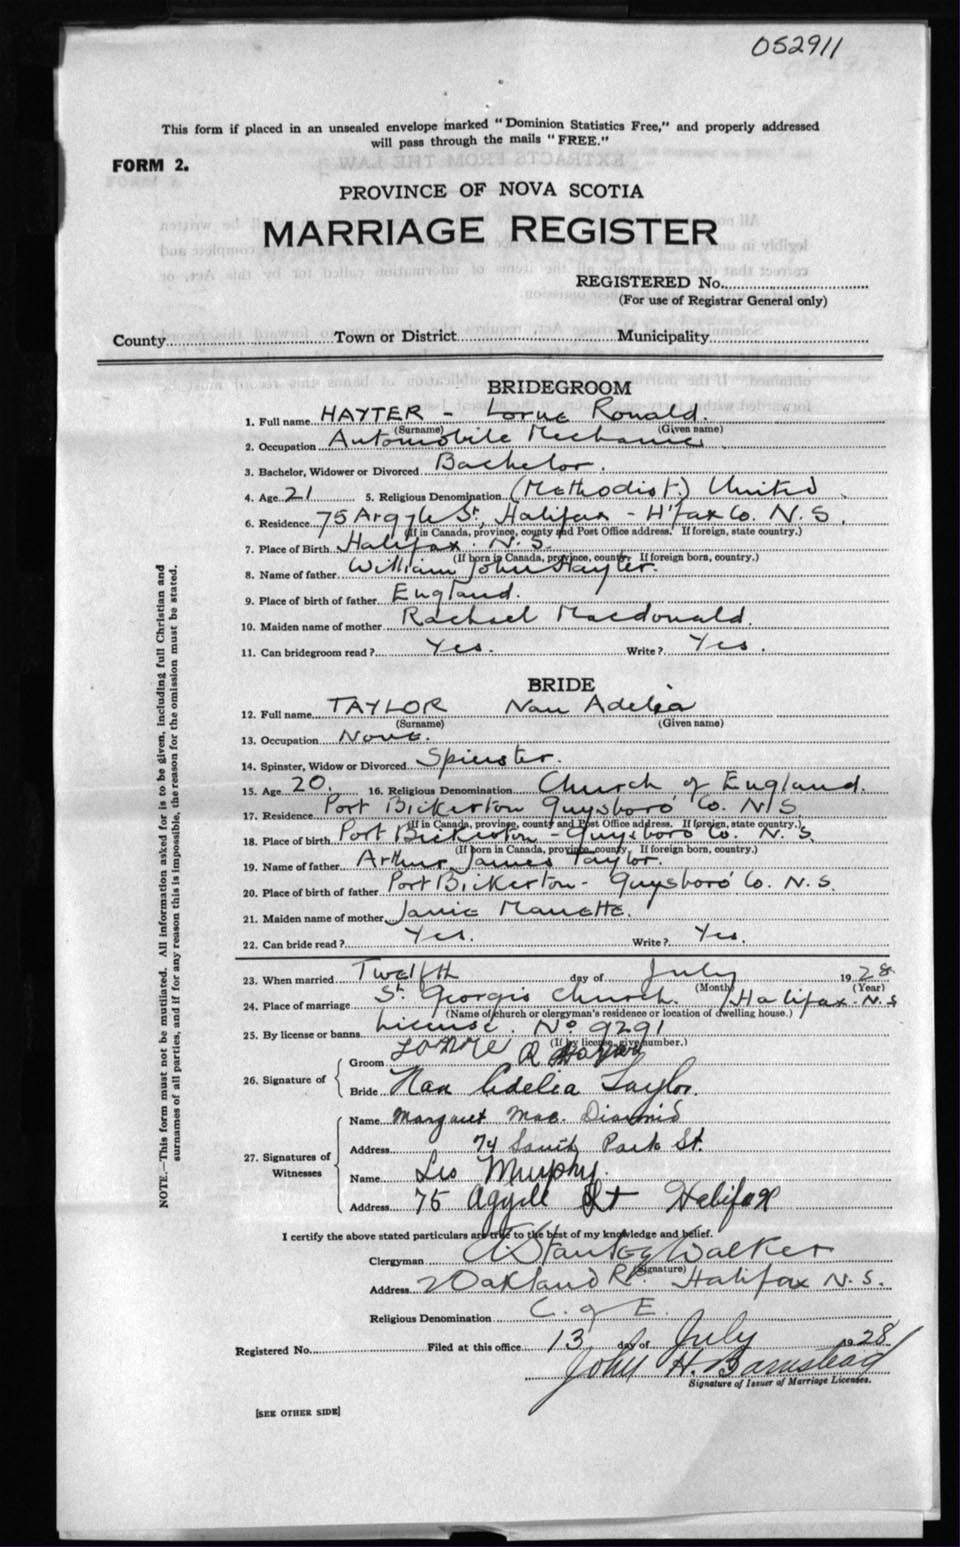 052911
This form if placed in an unsealed envelope marked "Dominion Statistics Free," and properly addressed
will pass through the mails "FREE."
FORM 2.
PROVINCE OF NOVA SCOTIA
MARRIAGE REGISTER
REGISTERED No.
(For use of Registrar General only)
County Town or District Municipality
BRIDEGROOM
1. Full name HAYTER - Lorne Ronald.
(Surname) (Given name)
2. Occupation Automobile Mechanic
3. Bachelor, Widower or Divorced Bachelor.
4. Age 21 5. Religious Denomination (Methodist.) United
6. Residence 75 Argyle St, Halifax - H'fax Co. N.S.
(If in Canada, province, county and Post Office address. If foreign, state country.)
7. Place of Birth Halifax. N.S.
(If born in Canada, province, county. If foreign born, country.)
8. Name of father William John Hayter.
9. Place of birth of father England.
10. Maiden name of mother Rachael Macdonald.
11. Can bridegroom read? Yes. Write? Yes.
BRIDE
12. Full name TAYLOR Nan Adelia
(Surname) (Given name)
13. Occupation None.
14. Spinster, Widow or Divorced Spinster.
15. Age 20. 16. Religious Denomination Church of England.
17. Residence Port Bickerton Guysboro' Co. N.S
(If in Canada, province, county and Post Office address. If foreign, state country.)
18. Place of birth Port Bickerton - Guysboro Co. N.S.
(If born in Canada, province, county. If foreign born, country.)
19. Name of father Arthur James Taylor.
20. Place of birth of father Port Bickerton - Guysboro' Co. N.S.
21. Maiden name of mother Janie Manette.
22. Can bride read? Yes. Write? Yes.
23. When married Twelfth day of July 1928
(Month) (Year)
24. Place of marriage St. Georges Church. Halifax. N.S
(Name of church or clergyman's residence or location of dwelling house.)
25. By license or banns License. No 9291
(If by license, give number.)
26. Signature of
Groom Lorne R Hayter
Bride Nan Adelia Taylor.
27. Signatures of Witnesses
Name Margaret Mac. Diarmid
Address 74 South Park St.
Name Leo Murphy.
Address 75 Agyle St Halifax
I certify the above stated particulars are true to the best of my knowledge and belief.
Clergyman Stanley Walker
(Signature)
Address 2 Oakland Rd. Halifax N.S.
Religious Denomination C. of E.
Registered No. Filed at this office 13 day of July 1928
John H. Barnstead
Signature of Issuer of Marriage Licenses.
[SEE OTHER SIDE]
NOTE.—This form must not be mutilated. All information asked for is to be given, including full Christian and
surnames of all parties, and if for any reason this is impossible, the reason for the omission must be stated.